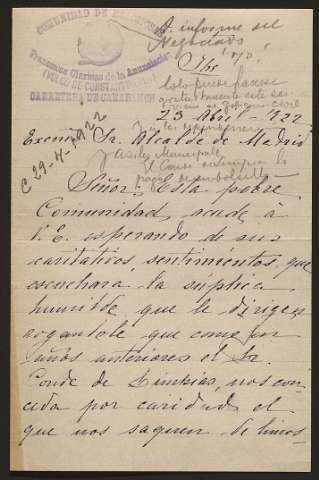 COMUNIDAD DE
Franciscas Clarisas de la Anunciada
(VULGO DE CONSTANTINOPLA)
CARRETERA DE CARABANCHEL
A informe del
Negociado
23 Abril - 1922
C 29-4-1922
Excmo Sr. Alcalde de Madrid
Asilos Municipales
Señor: Esta pobre
Comunidad, acude á
V. E. esperando de sus
caritativos, sentimientos, que
escuchará la súplica
humilde, que le dirigen
rogandole que como por
años anteriores el Sr.
Conde de Limpias, nos con-
ceda por caridad el
que nos saquen de limos